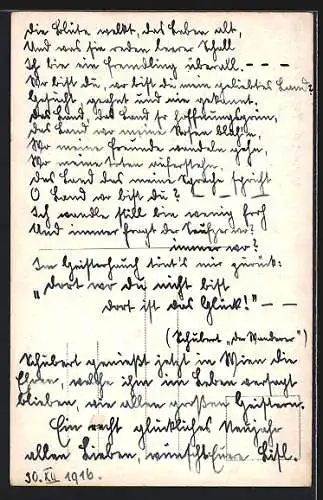 die Blüte welkt, das Leben alt,
Und was sie reden leerer Schall
Ich bin ein Fremdling überall. – – –
Wo bist du, wo bist du mein geliebtes Land?
Gesucht geahnt und nie gekannt.
das Land, das Land so hoffnungsgrün,
das Land wo meine Rosen blühn,
Wo meine Freunde wandeln gehn,
Wo meine Toten auferstehn,
das Land das meine Sprache spricht
O Land wo bist du? – – –
Ich wandle still bin wenig froh
Und immer fragt der Seufzer wo?
immer wo?
Im Geisterhauch tönt's mir zurück:
„dort wo du nicht bist
dort ist das Glück!" – –
(Schubert „der Wanderer")
Schubert genießt jetzt in Wien die
Ehren, welche ihm im Leben versagt
blieben, wie allen großen Geistern.
Ein recht glückliches Neujahr
allen Lieben, wünscht Eure
30. XII 1916.